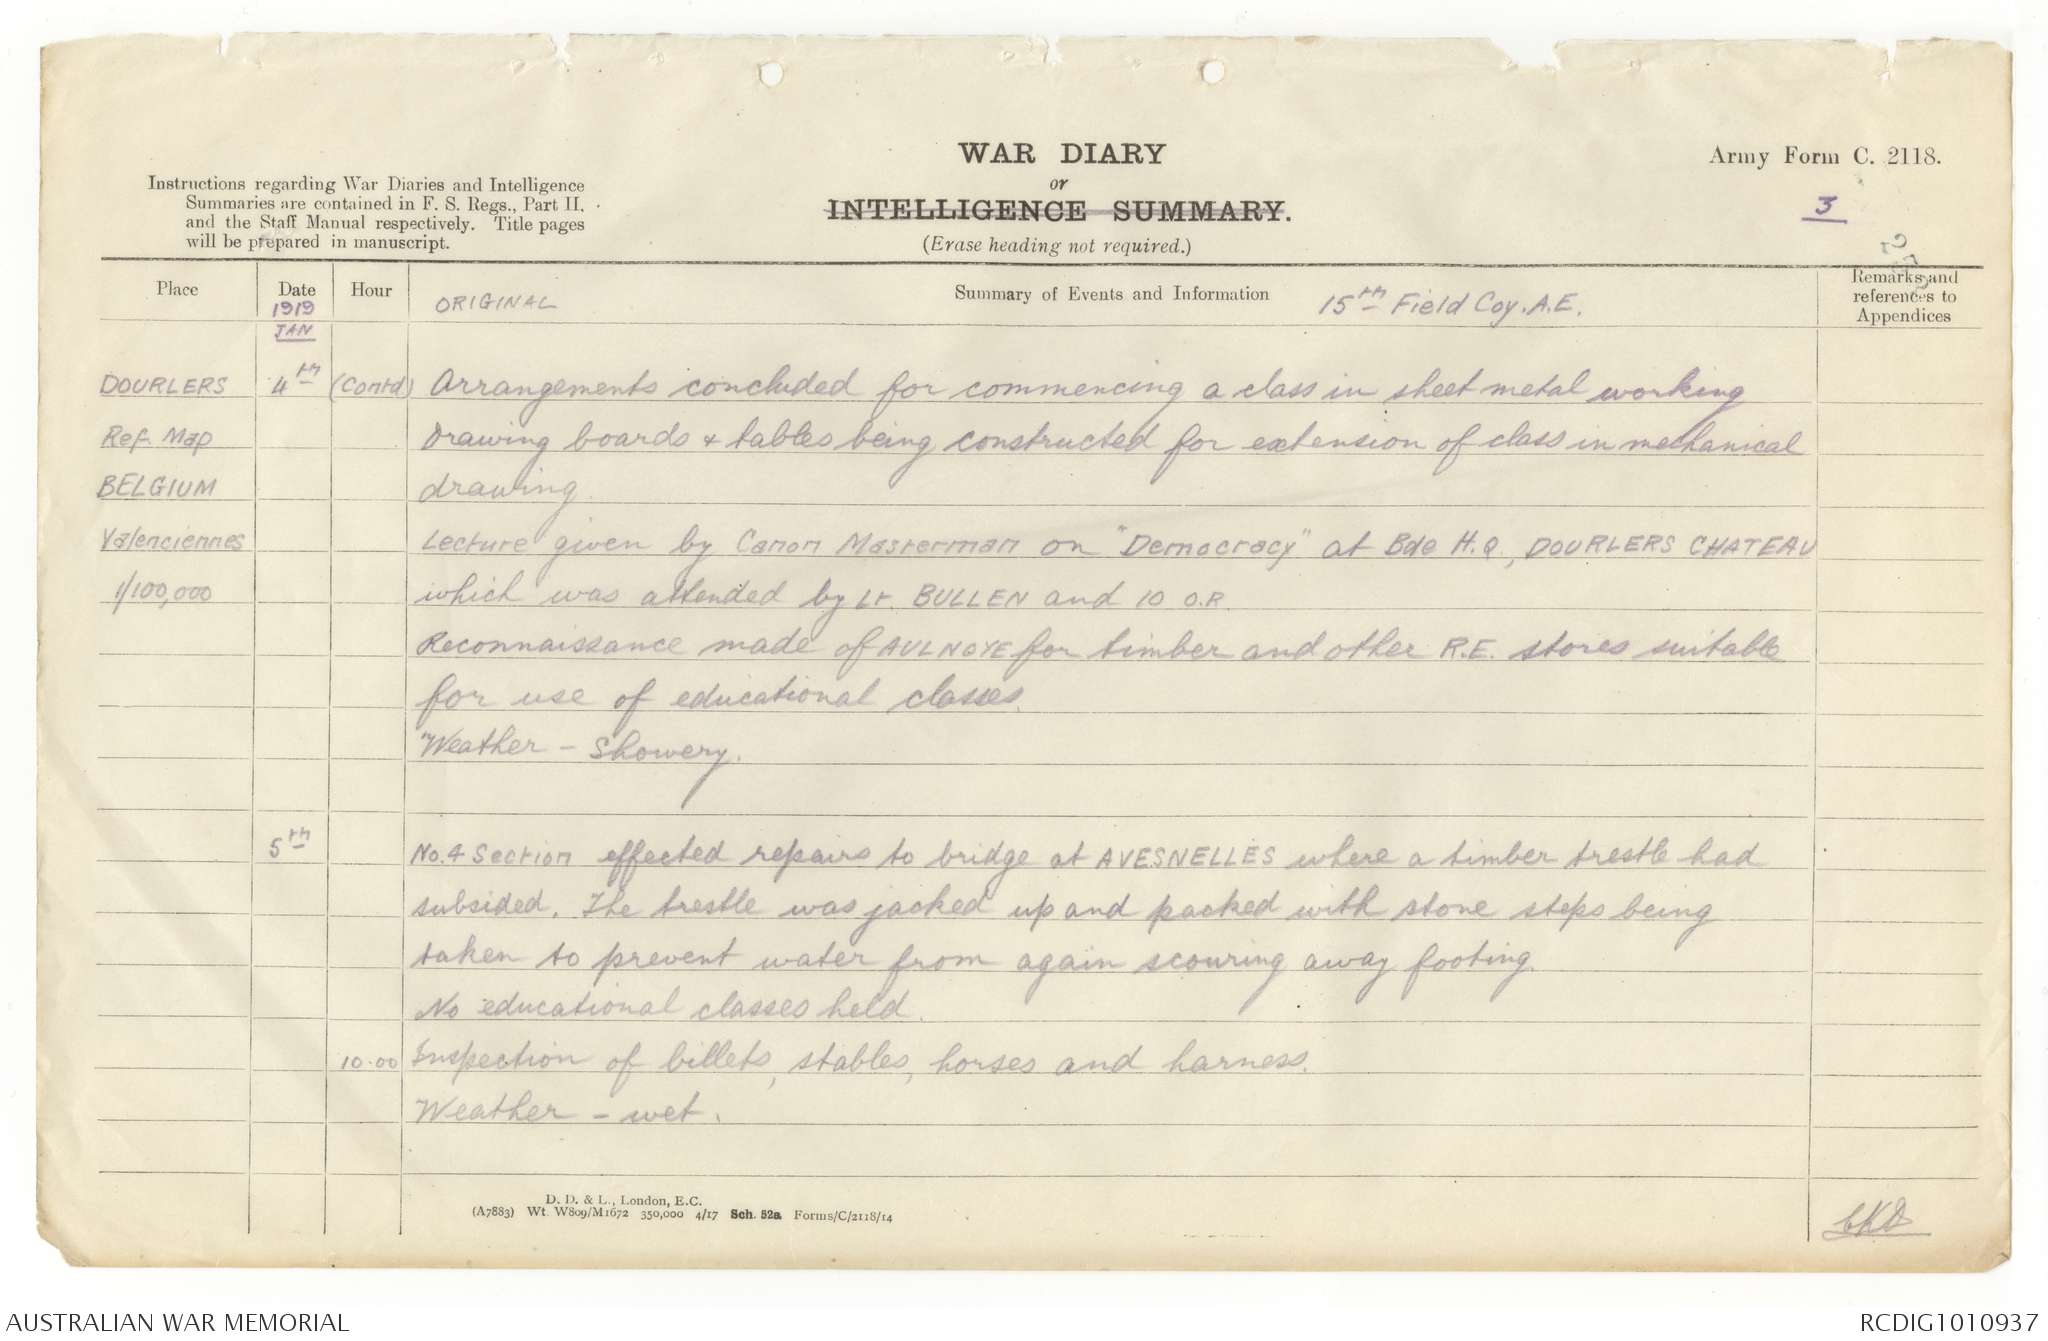 WAR DIARY
or
INTELLIGENCE SUMMARY.
(Erase heading not required.)
Army Form C. 2118.
3
Instructions regarding War Diaries and Intelligence
Summaries are contained in F. S. Regs., Part II.
and the Staff Manual respectively. Title pages
will be prepared in manuscript.
Place Date Hour Summary of Events and Information Remarks and
references to
Appendices
1919 ORIGINAL 15th Field Coy. A.E.
JAN
DOURLERS 4th (Contd) Arrangements concluded for commencing a class in sheet metal working
Ref. Map Drawing boards & tables being constructed for extension of class in mechanical
BELGIUM drawing
Valenciennes Lecture given by Canon Masterman on "Democracy" at Bde H.Q., DOURLERS CHATEAU
1/100,000 which was attended by Lt. BULLEN and 10 O.R.
Reconnaissance made of AULNOYE for timber and other R.E. stores suitable
for use of educational classes.
Weather - Showery.
5th No. 4 Section effected repairs to bridge at AVESNELLES where a timber trestle had
subsided. The trestle was jacked up and packed with stone steps being
taken to prevent water from again scouring away footing.
No educational classes held.
10.00 Inspection of billets, stables, horses and harness.
Weather - wet.
D. D. & L., London, E.C.
(A7883) Wt. W809/M1672 350,000 4/17 Sch. 52a Forms/C/2118/14
AUSTRALIAN WAR MEMORIAL
RCDIG1010937